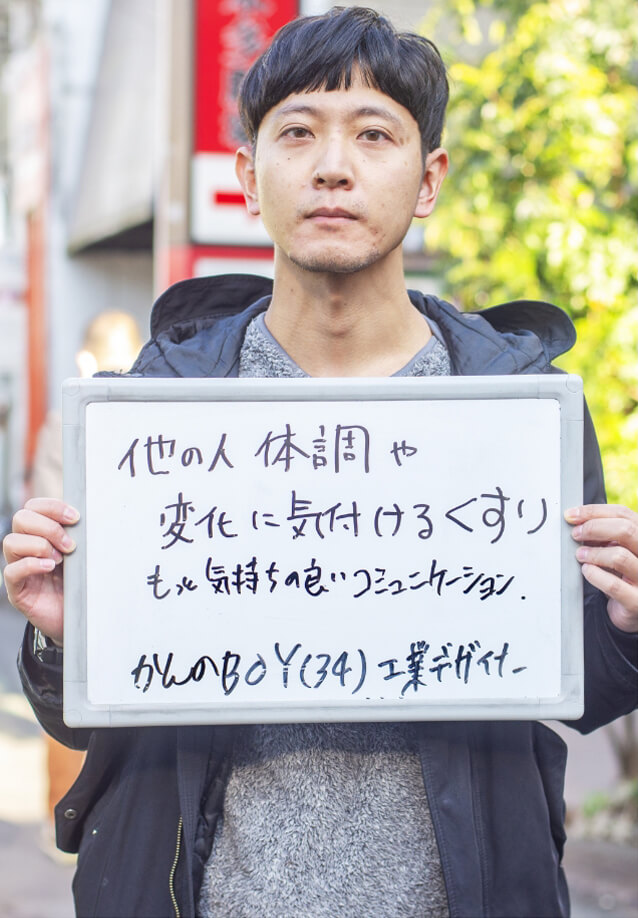 他の人 体調や
変化に気付けるくすり
もっと気持ちの良いコミュニケーション.
かんのBOY(34) 工業デザイナー